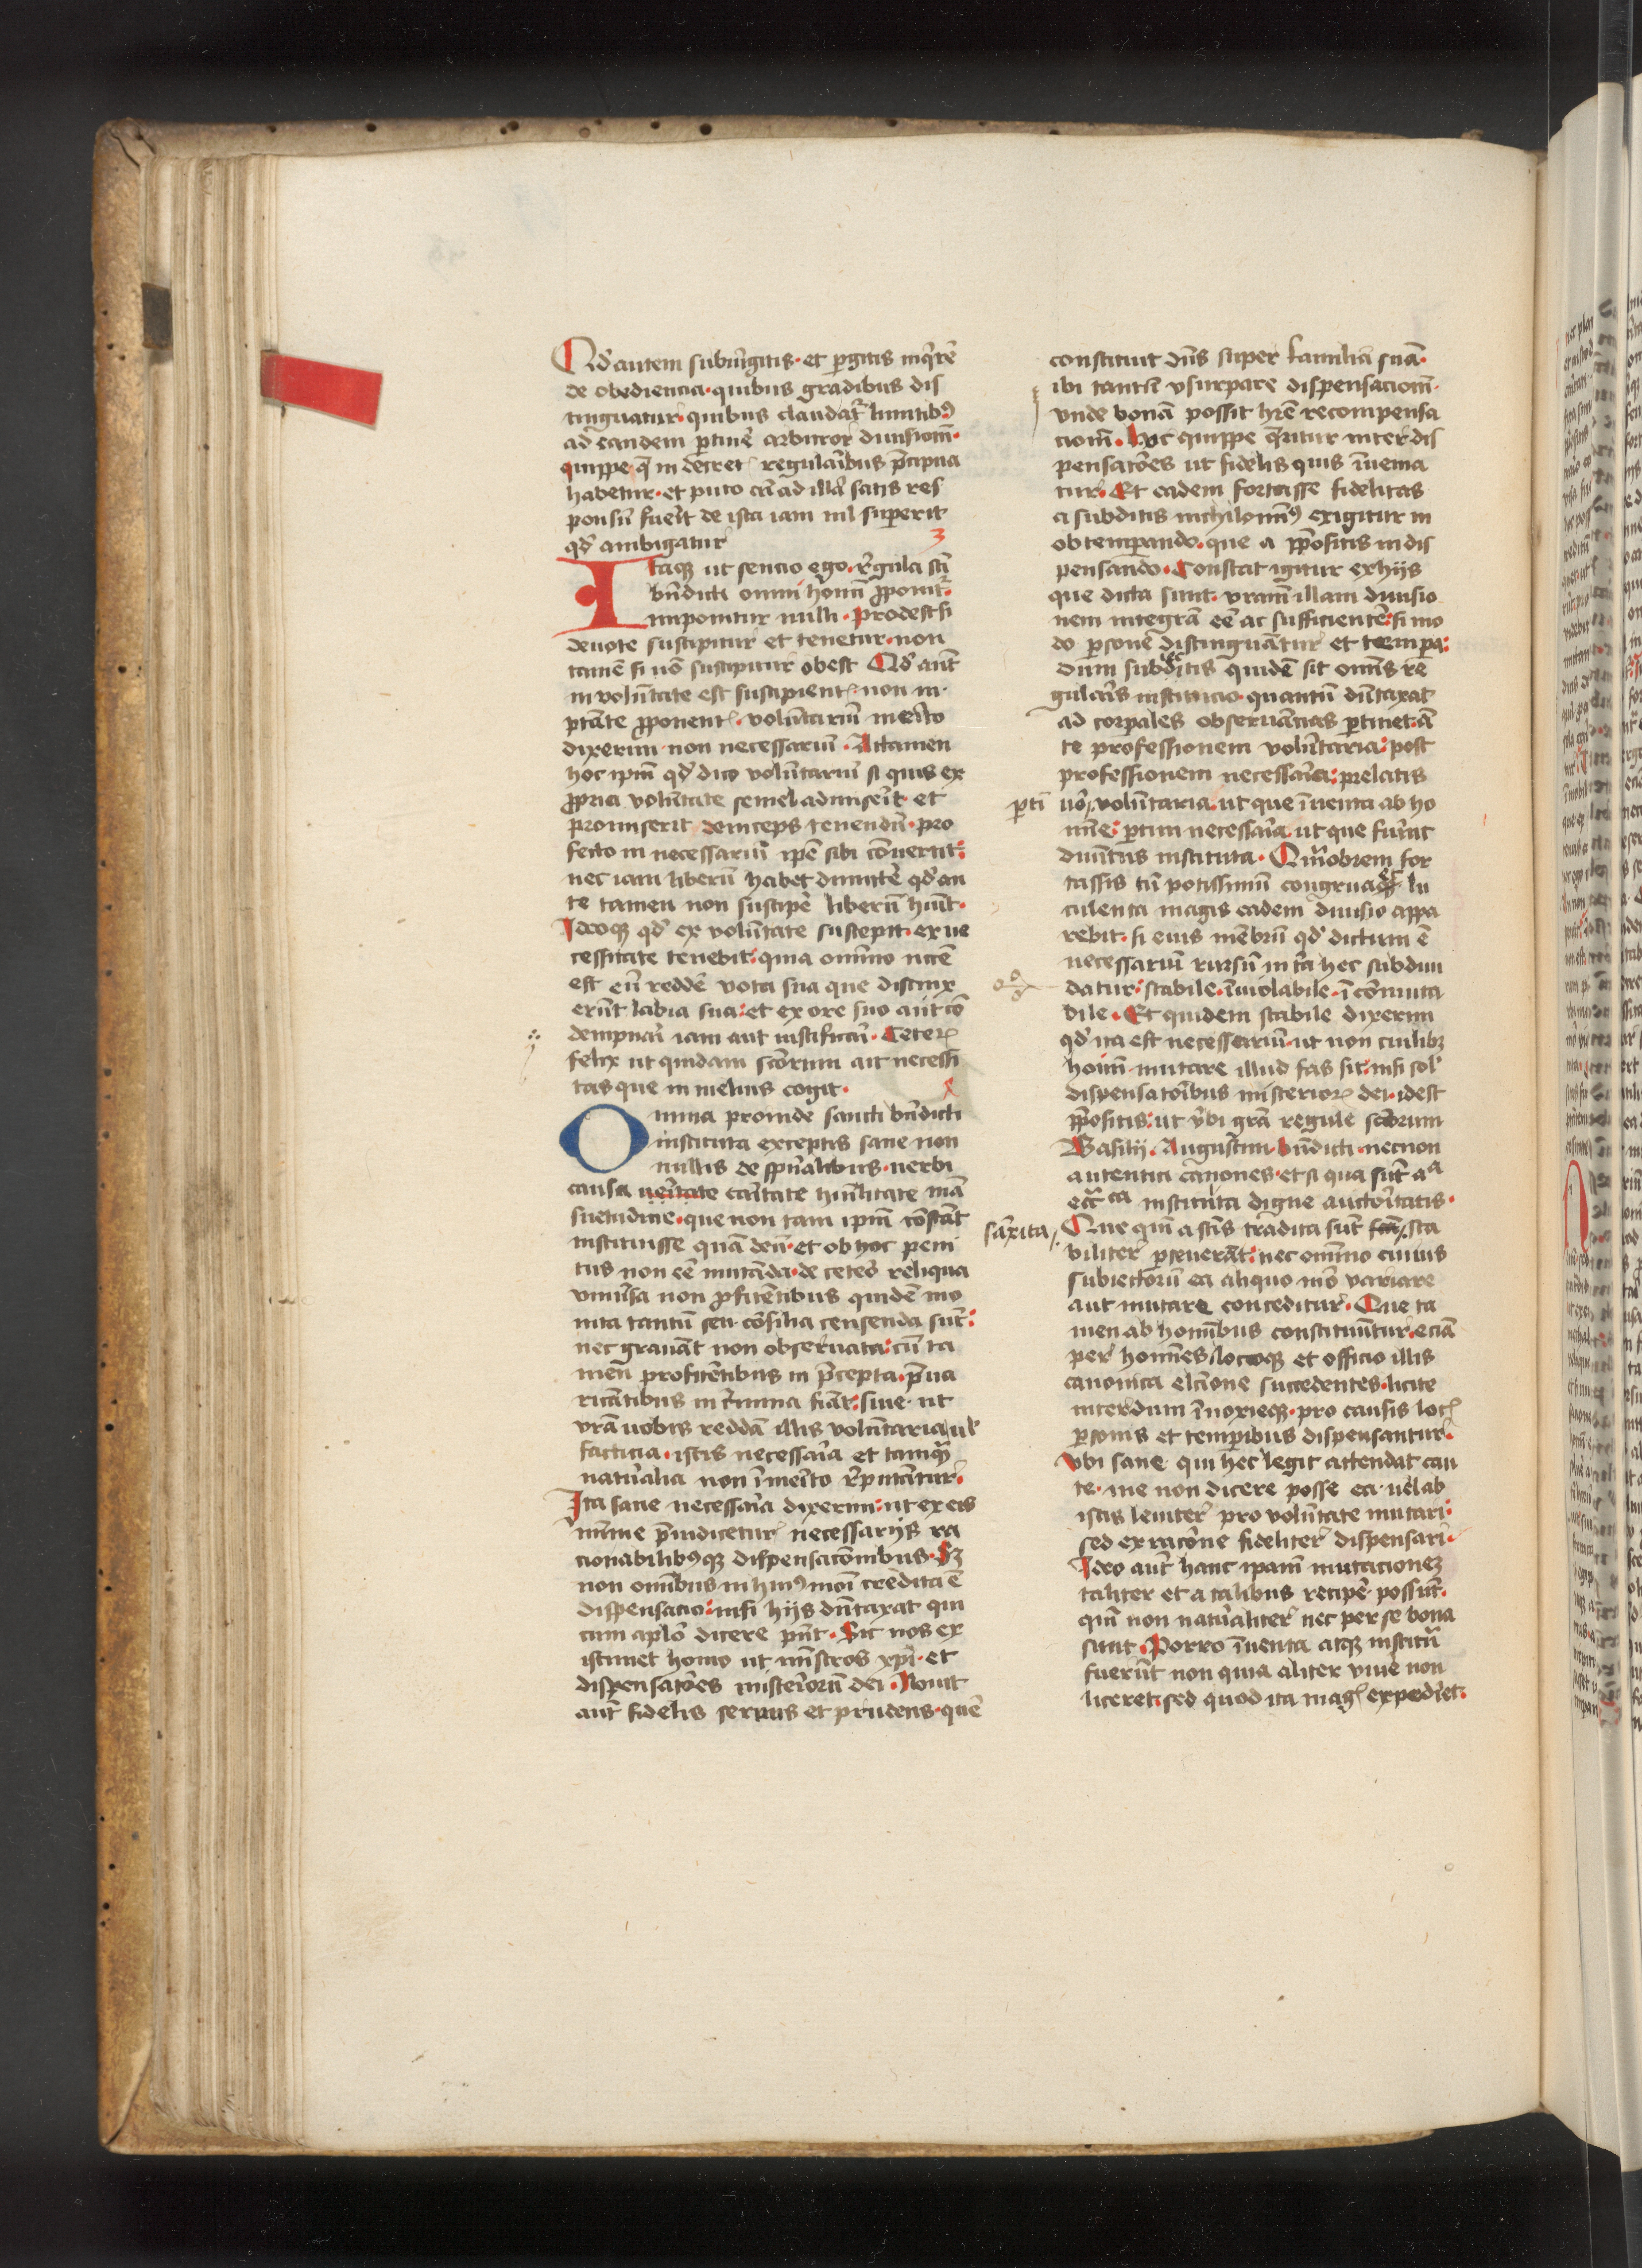 Qd' autem subiungitis· et pergitis inq'rē
de obediencia· quibus gradibus dis
tinguatur· quibus claudat' limitib9
ad eandem p'tinē' arbitror diuisiom̄·
quippe q̄ in decret' regularibus p̄cipua
habetur· et puto cū ad illā satis res
ponsū fuerit de ista iam nil superit
qd' ambigatur 3
Itaq3 ut sencio ego· r'gula sci
bn̄dicti omni homī p̄ponit'
imponitur nulli· Prodest si
deuote suscipitur et tenetur· non
tamē si nō suscipitur obest Qd' aūt
in volūtate est suscipient'· non in·
ptāte p̄ponent'· volūtariū merito
dixerim· non necessariū· Attamen
hoc ipm̄ qd' dico volūtariū si quis ex
propria volūtate semel admiserit· et
promiserit deinceps tenendū· pro
fecto in necessariū ipē sibi cōuertit:
nec iam liberū habet dimittē' qd' an
te tamen non suscipē' liberū hūit·
Ideoq3 qd' ex volūtate suscepit· ex ne
cessitate tenebit: quia omīno necē
est eū redde' vota sua que distinx
erūt labia sua: et ex ore suo aut cō
dempnari iam aut iustificari· Ceter'
felix ut quidam scōrum ait necessi
tas que in melius cogit·
Omnia proinde sancti bn̄dicti
instituta exceptis sane non
nullis de sp̄ualibus· uerbi
causa ueritate caritate humilitate mā
suetudine· que non tam ipm̄ cōstāt
instituisse quā deū· et ob hoc peni
tus non eē mutāda· de cetero reliqua
vniu'sa non profitētibus quidē mo
nita tantū seu cōsilia censenda sūt:
nec grauāt non obseruata: cū ta
men profitētibus in p̄cepta· p̄ua
ricātibus in crimina fiāt: siue· ut
vrā uobis reddā illis volūtaria ul'
facticia· istis necessaria et tamq̄
naturalia non īmerito r'putātur·
Ita sane necessaria dixerim: ut ex eis
mīme p̄iudicetur necessarijs ra
cionabilib9q3 dispensaciōnibus· S3
non omībus in hui9moi credita ē
dispensacio: nisi hijs dūtaxat qui
cum aplō dicere pn̄t· Sic nos ex
istimet homo ut mīstros xpī· et
dispensatōes misteriorū dei· Nouit
aūt fidelis seruus et prudens· quē
constituit dn̄s super familiā suā·
ibi tantū vsurpare dispensacionē·
vnde bonā possit hr̄e recompensa
cionē· Hoc quippe q̄ritur inter dis
pensatōes ut fidelis quis īuenia
tur· Et eadem fortasse fidelitas
a subditis nichilomī9 exigitur in
obtemperando· que a p̄positis in dis
pensando· Constat igitur ex hijs
que dicta sunt· vrām illam diuisio
nem integrā eē ac sufficientē: si mo
do p'sone distinguātur et tempora:
dum subditis quidē sit omīs re
gularis institucio· quantū dūtaxat
ad corp'ales obseruācias p'tinet· ā
te professionem volūtaria: post
professionem necessaria: prelatis
p'tī uō· voluntaria· ut que īuenta ab ho
mīne: p'tim necessaria· ut que fuerūt
diuinitus instituta· Quāobrem for
tassis tū potissimū congrua et lu
culenta magis eadem diuisio appa
rebit· si eius mēbrū qd' dictum ē
necessariū rursū in tria hec subdiui
datur: stabile· īuiolabile· ī cōmuta
bile· Et quidem stabile dixerim
qd' ita est necessariū· ut non cuilib3
homī mutare illud fas sit· nisi sol'
dispensatoribus misterior' dei· idest
p̄positis: ut v'bi grā regule scōrum
Basilij· Augustini· bn̄dicti· necnon
autentici canones· et si qua sūt aª
ecc̄tica instituta digne auctoritatis·
sāxita Que qm̄ a scīs tradita sūt sta
biliter p'seuerāt: nec omīno cuius
subiectorū ea aliquo mō variare
aut mutare conceditur· Que ta
men ab homībus constituūtur· eciā
per homīnes locoq3 et officio illis
canonica elcīone succedentes· licite
interdum īnoxieq3· pro causis loc'
p'sonis et temporibus dispensantur·
Vbi sane qui hec legit attendat cau
te· me non dicere posse ea· uel ab
istis leuiter pro volūtate mutari:
sed ex racōne fideliter dispensari·
Ideo aūt hanc ipam mutacione3
taliter et a talibus recipe' possūt·
qm̄ non naturaliter nec per se bona
sunt· Porro īuenta atq3 institū
fuerūt non quia aliter viue' non
liceret· sed quod ita mag' expediret·